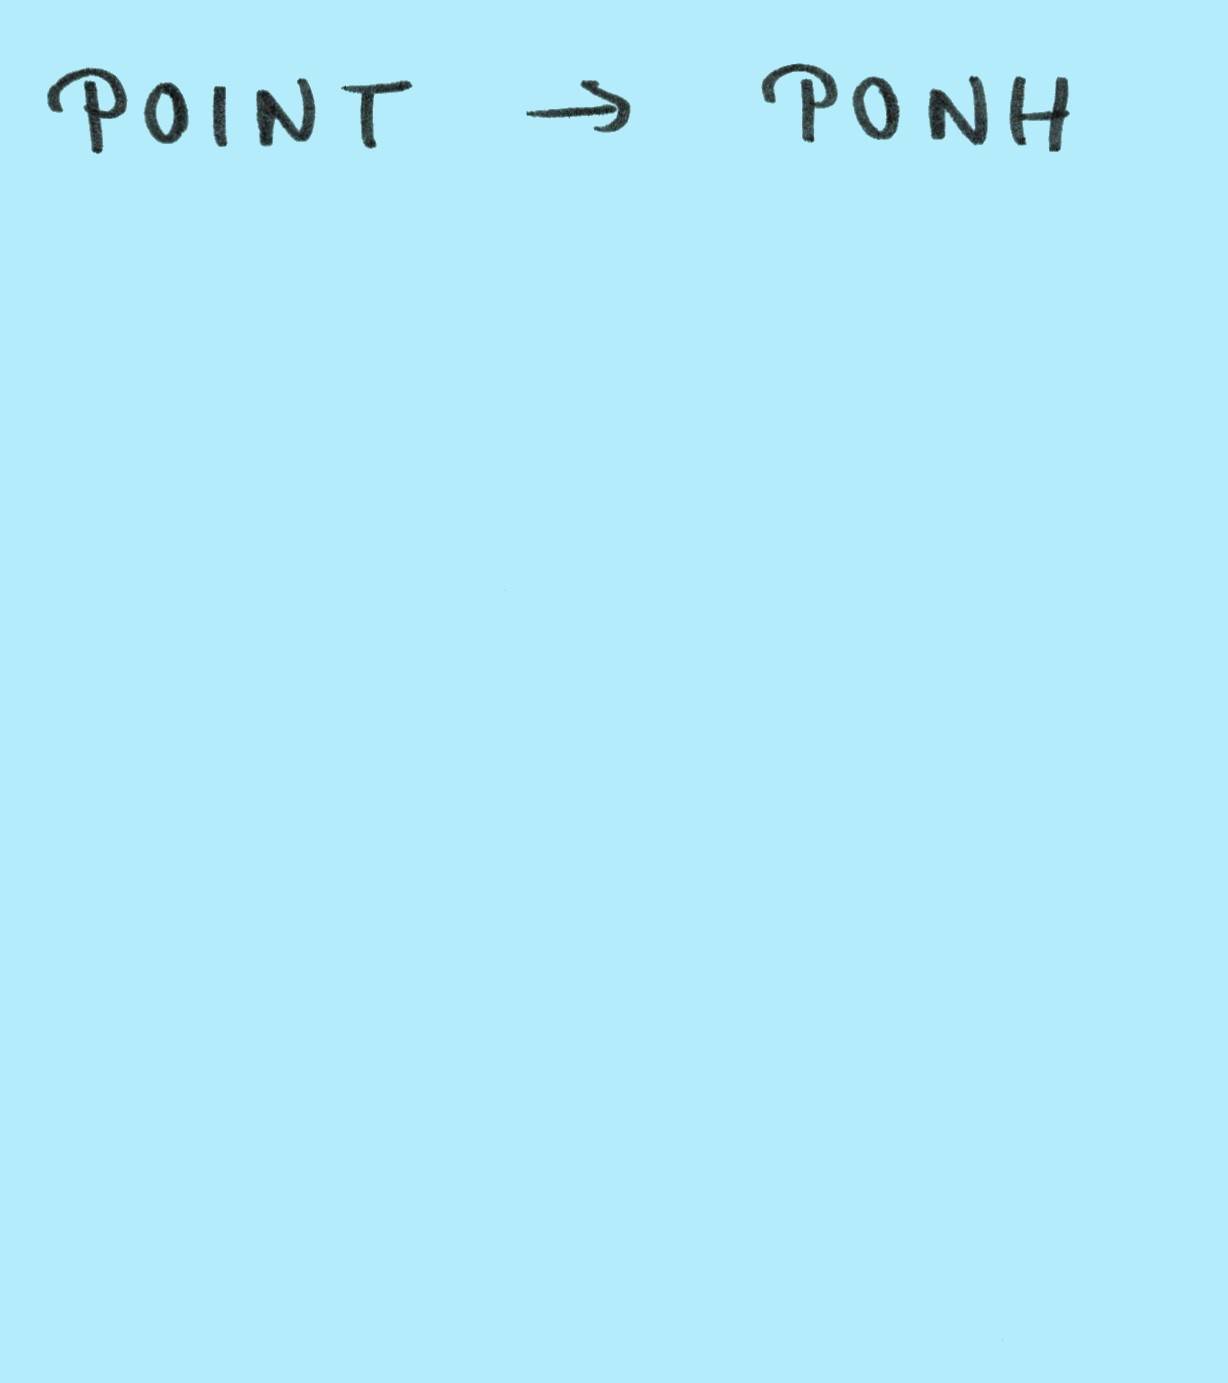 POINT → PONH